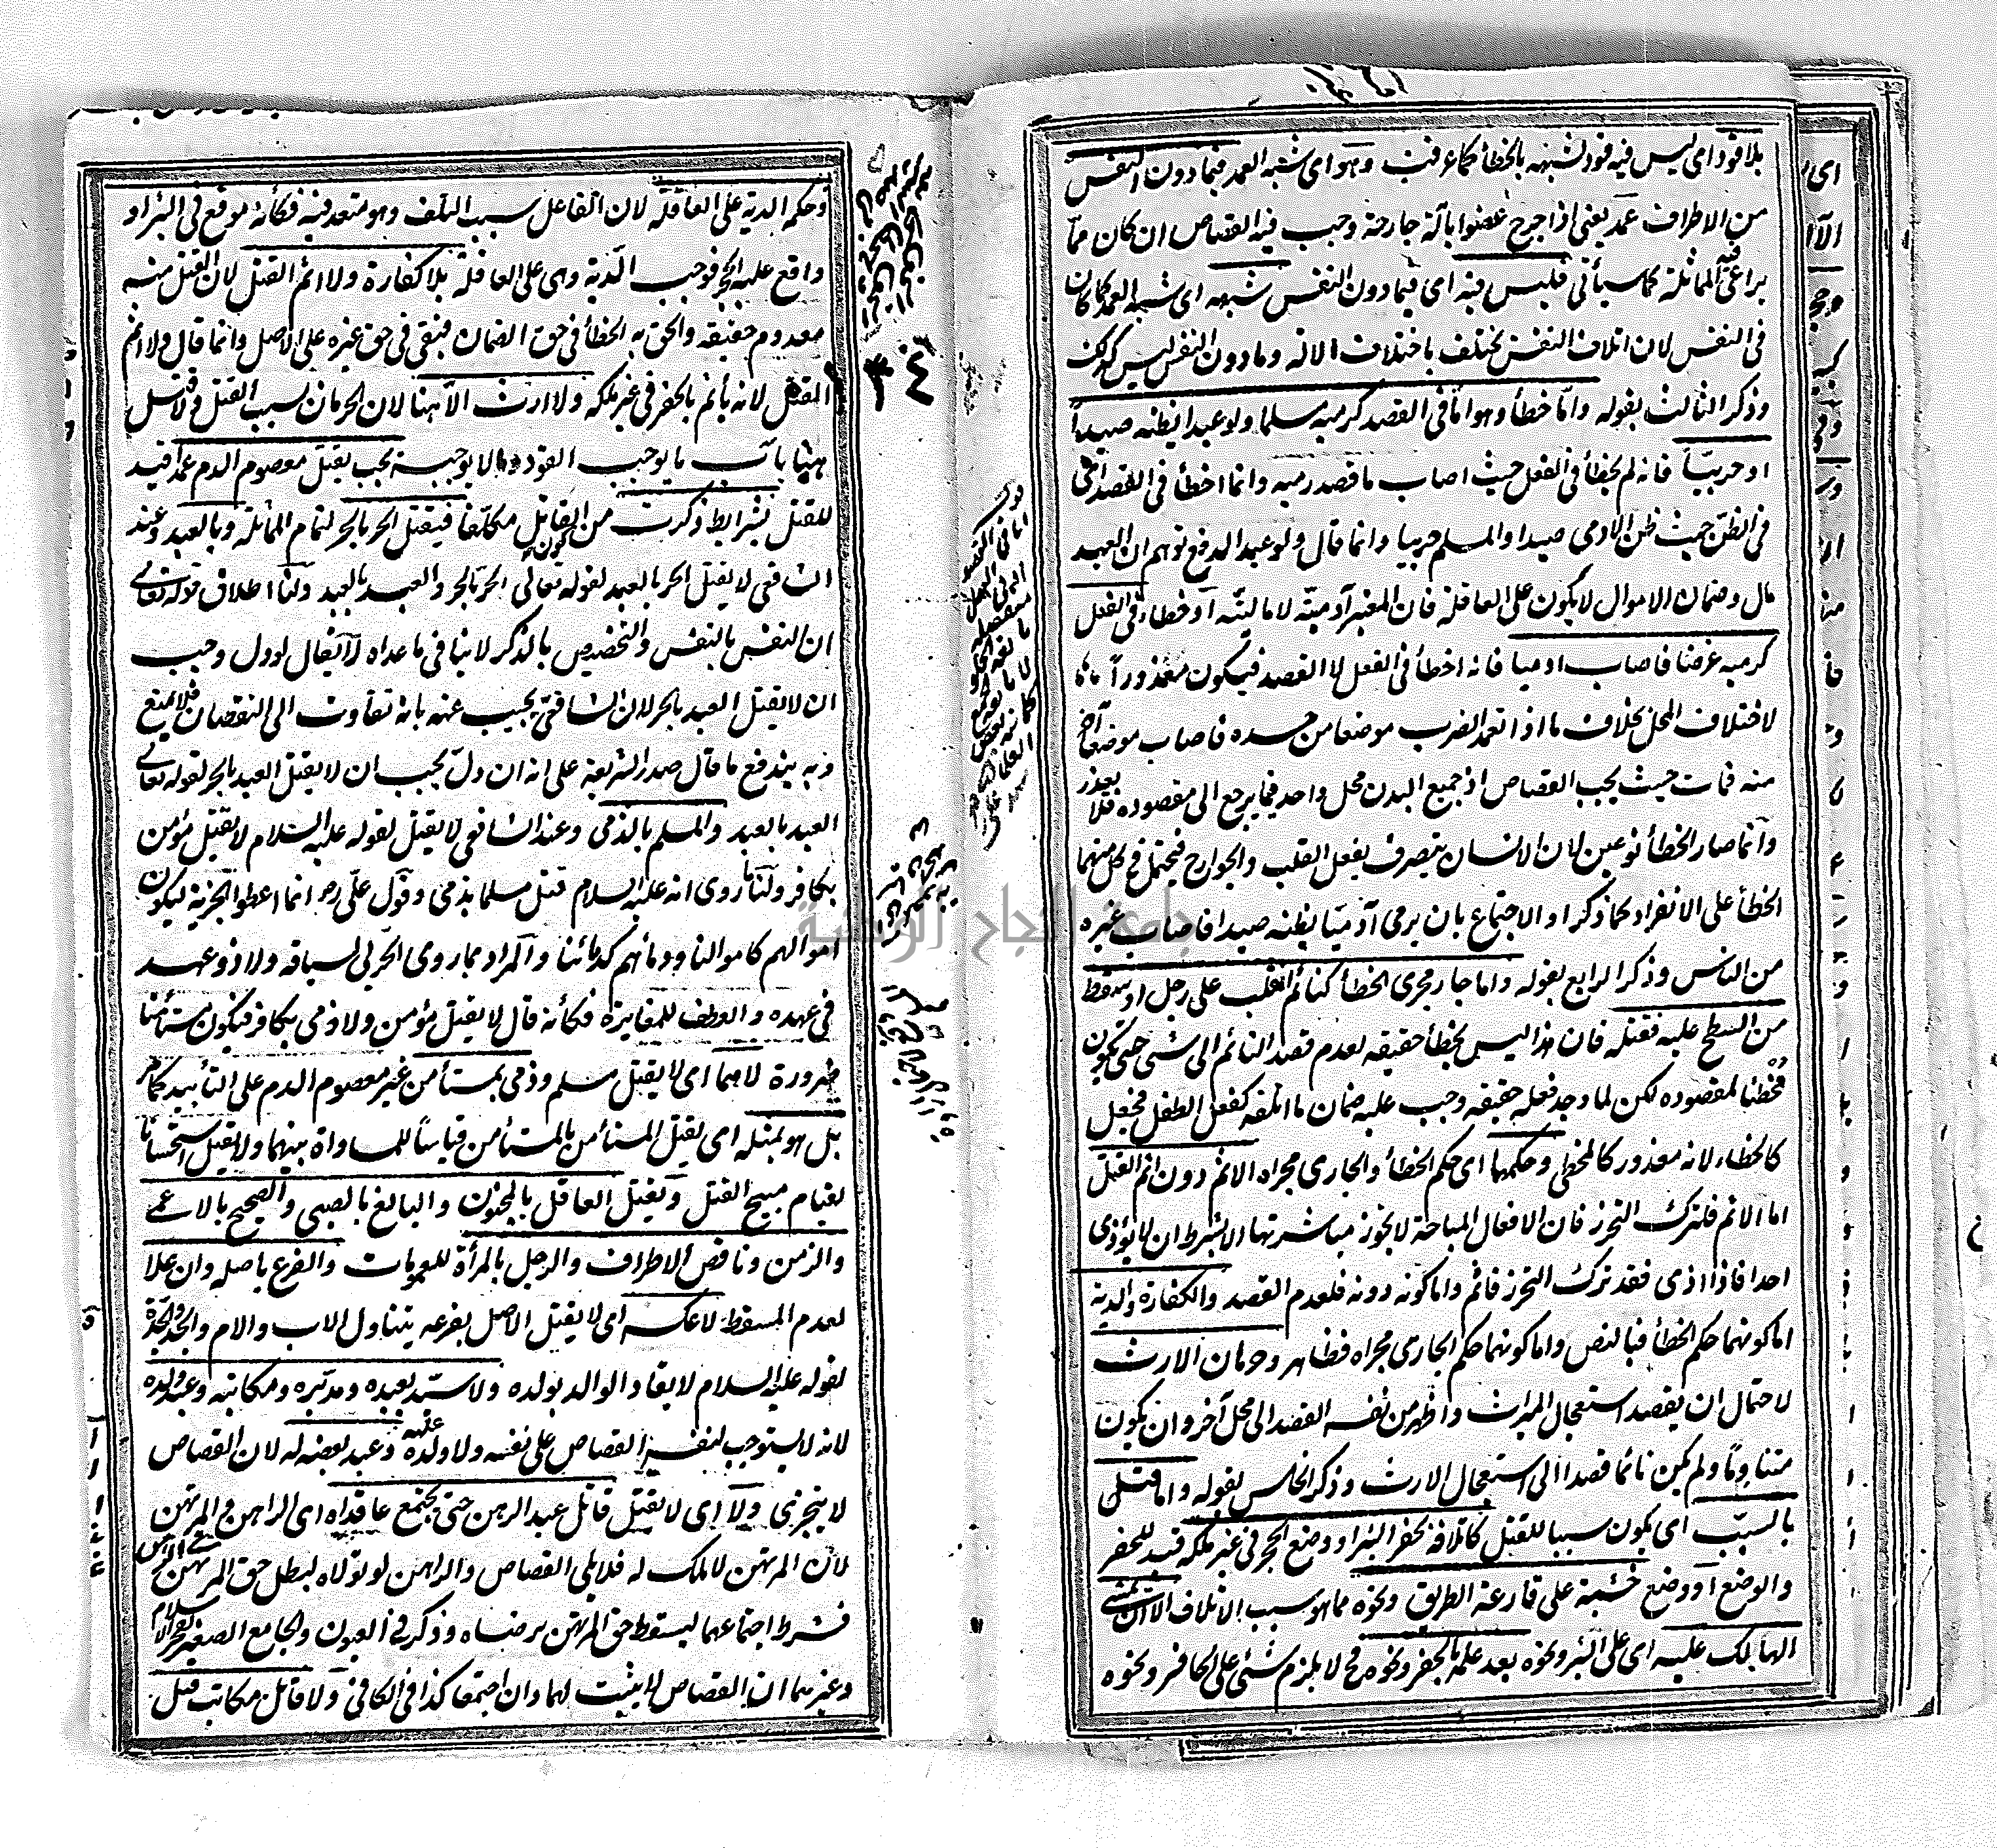 بلا قود اى ليس فيه قود لشبهه بالخطأ كما عرفت وهو اى شبه العمد فيما دون النفس
من الاطراف عمد يعنى اذا جرح عضوا بآلة جارحة وجب فيه القصاص ان كان مما
يراعى فيه المماثلة كما سيأتى فليس فيه اى فيما دون النفس شبهه اى شبه العمد كما كان
فى النفس لان اتلاف النفس يختلف باختلاف الالة وما دون النفس ليس كذلك
وذكر الثالث بقوله واما خطأ وهو اما فى القصد كرميه مسلما ولو عبدا يظنه صيدا
او حربيا فانه لم يخطأ فى الفعل حيث اصاب ما قصد رميه وانما اخطأ فى القصد اى
فى الظن حيث ظن الادمى صيدا والمسلم حربيا وانما قال ولو عبدا لدفع توهم ان العبد
مال وضمان الاموال لا يكون على العاقلة فان المعتبر آدميته لا ماليته او خطاء فى الفعل
كرميه غرضا فاصاب ادميا فانه اخطأ فى الفعل لا القصد فيكون معذورا
لاختلاف المحل بخلاف ما اذا تعمد الضرب موضعا من جسده فاصاب موضعا آخر
منه فمات حيث يجب القصاص اذ جميع البدن محل واحد فيما يرجع الى مقصوده فلا يعذر
وانما صار الخطأ نوعين لان الانسان يتصرف بفعل القلب والجوارح فيحتمل فى كل منهما
الخطأ على الانفراد كما ذكر او الاجتماع بان يرمى آدميا يظنه صيدا فاصاب غيره
من الناس وذكر الرابع بقوله واما جار مجرى الخطأ كنائم انقلب على رجل او سقط
من السطح عليه فقتله فان هذا ليس بخطأ حقيقة لعدم قصد النائم الى شئ حتى يكون
مخطئا لمقصوده لكن لما وجد فعله حقيقة وجب عليه ضمان ما اتلفه كفعل الطفل فجعل
كالخطاء لانه معذور كالمخطى وحكمهما اى حكم الخطأ والجارى مجراه الاثم دون اثم القتل
اما الاثم فلترك التحرز فان الافعال المباحة لا يجوز مباشرتها الا بشرط ان لا يؤذى
احدا فاذا اذى فقد ترك التحرز فاثم واما كونه دونه فلعدم القصد والكفارة والدية
اما كونهما حكم الخطأ فبالنص واما كونهما حكم الجارى مجراه فظاهر وحرمان الارث
لاحتمال ان يقصد استعجال الميراث واظهر من نفسه القصد الى محل آخر وان يكون
متناوما ولم يكن نائما قصدا الى استعجال الارث وذكر الخامس بقوله واما قتل
بالسبب اى يكون سببا للقتل كاتلافه بحفر البئر او وضع الحجر فى غير ملكه قيد للحفر
والوضع او وضع خشبة على قارعة الطريق ونحوه مما هو سبب الاتلاف الا ان يمشى
الهالك عليه اى على البئر ونحوه بعد علمه بالحفر ونحوه فح لا يلزم شئ على الحافر ونحوه
وحكمه الدية على العاقلة لان الفاعل سبب التلف وهو متعد فيه فكأنه موقع فى البئر او
واقع عليه الحجر فوجب الدية وهى على العاقلة بلا كفارة ولا اثم القتل لان القتل منه
معدوم حقيقة والحق به الخطأ فى حق الضمان فبقى فى حق غيره على الاصل وانما قال ولا اثم
القتل لانه يأثم بالحفر فى غير ملكه ولا ارث الا هنا لان الحرمان بسبب القتل ولا قتل
ههنا باب ما يوجب القود وما لا يوجبه يجب بقتل معصوم الدم عمدا قيد
للقتل بشرايط ذكرت من كون القاتل مكلفا فيقتل الحر بالحر لتمام المماثلة وبالعبد وعند
الشافعى لا يقتل الحر بالعبد لقوله تعالى الحر بالحر والعبد بالعبد ولنا اطلاق قوله تعالى
ان النفس بالنفس والتخصيص بالذكر لا ينافى ما عداه لا يقال لو دل وجب
ان لا يقتل العبد بالحر لان الشافعى يجيب عنه بانه تفاوت الى النقصان فلا يمنع
وبه يندفع ما قال صدر الشريعة على انه ان دل يجب ان لا يقتل العبد بالحر لقوله تعالى
العبد بالعبد والمسلم بالذمى وعند الشافعى لا يقتل لقوله عليه السلام لا يقتل مؤمن
بكافر ولنا ما روى انه عليه السلام قتل مسلما بذمى وقول على رضى انما اعطوا الجزية ليكون
اموالهم كاموالنا ودمائهم كدمائنا والمراد بما روى الحربى لسياقه ولا ذو عهد
فى عهده والعطف للمغايرة فكأنه قال لا يقتل مؤمن ولا ذمى بكافر فيكون مستأمنا
ضرورة لا هما اى لا يقتل مسلم وذمى بمستأمن غير معصوم الدم على التأبيد كما مر
بل هو بمثله اى يقتل المستأمن بالمستأمن قياسا للمساواة بينهما ولا يقتل استحسانا
لقيام مبيح القتل ويقتل العاقل بالمجنون والبالغ بالصبى والصحيح بالاعمى
والزمن وناقص الاطراف والرجل بالمرأة للعمومات والفرع باصله وان علا
لعدم المسقط لا عكسه اى لا يقتل الاصل بفرعه يتناول الاب والام والجد والجدة
لقوله عليه السلام لا يقاد الوالد بولده ولا سيد بعبده ومدبره ومكاتبه وعبد ولده
لانه لا يستوجب لنفسه القصاص على نفسه ولا ولده عليه وعبد بعضه له لان القصاص
لا يتجزى ولا اى لا يقتل قاتل عبد الرهن حتى يجتمع عاقداه اى الراهن والمرتهن
لان المرتهن لا ملك له فلا يلى القصاص والراهن لو تولاه لبطل حق المرتهن
فشرط اجتماعهما ليسقط حق المرتهن برضاه وذكر فى العيون والجامع الصغير لفخر الاسلام
وغيرهما ان القصاص لا يثبت لهما وان اجتمعا كذا فى الكافى ولا قاتل مكاتب قتل
جامعة النجاح الوطنية